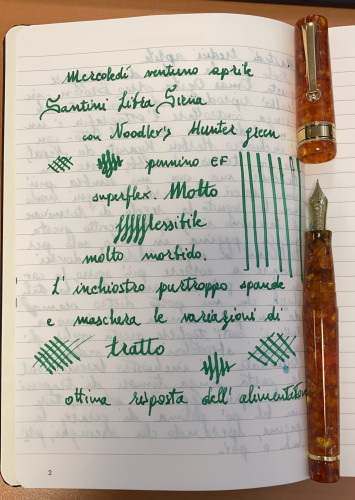 Mercoledì ventuno aprile
Santini Libra Sirna
con Noodler's Hunter green
pennino EF
superflex. Molto
flessibile
molto morbido.
L'inchiostro purtroppo spande
e maschera le variazioni di
tratto
ottima risposta dell'alimentatore
2